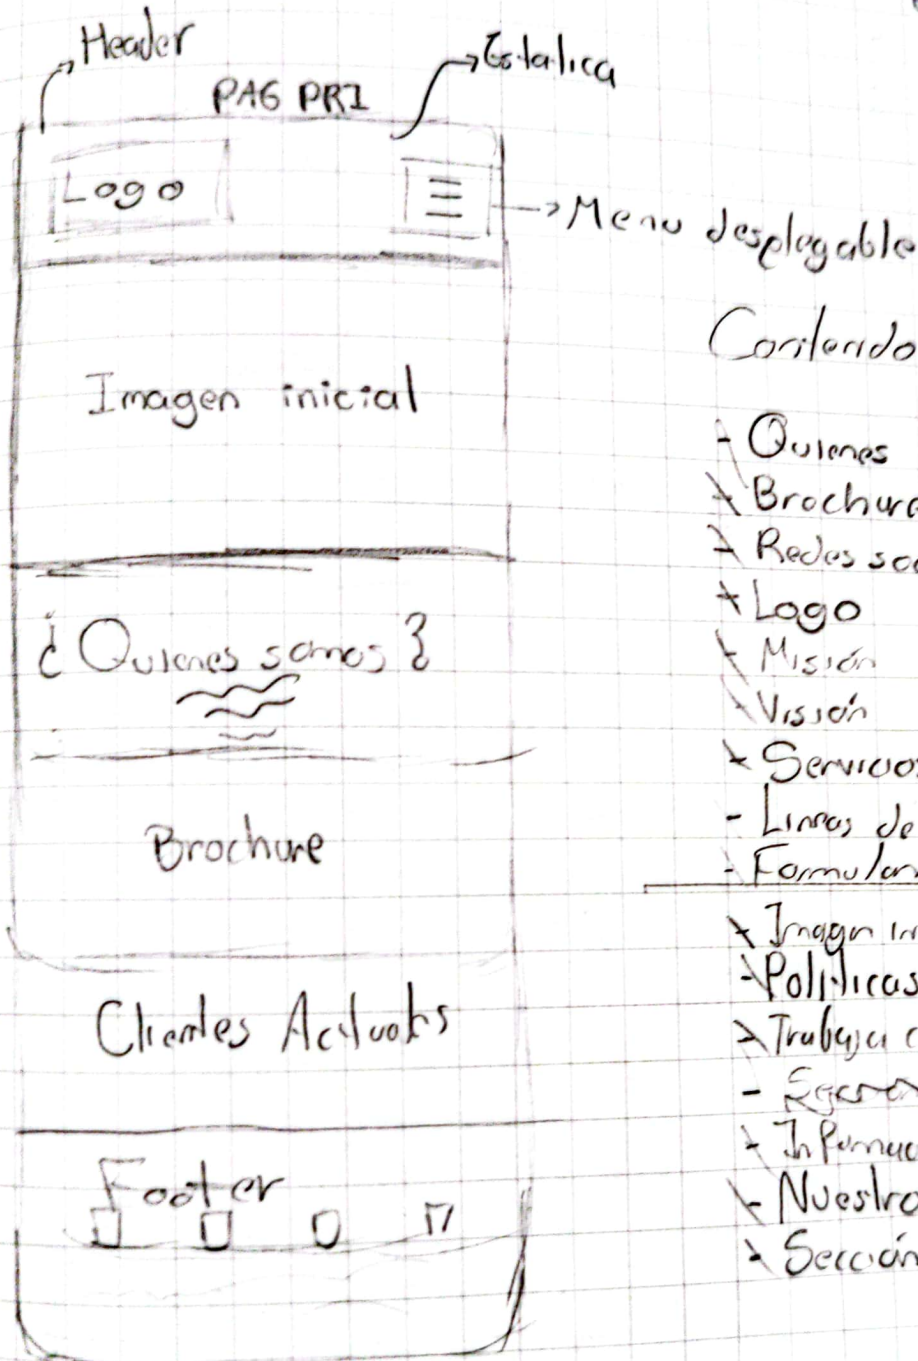 Header
Estatica
PAG PRI
Logo
Menu desplegable
Imagen inicial
¿Quienes somos?
Brochure
Clientes Actuales
Footer
Contenido
- Quienes
- Brochure
- Redes soc
- Logo
- Misión
- Visión
- Servicios
- Lineas de
- Formular
- Imagen in
- Politicas
- Trabaja c
- Informac
- Nuestro
- Sección